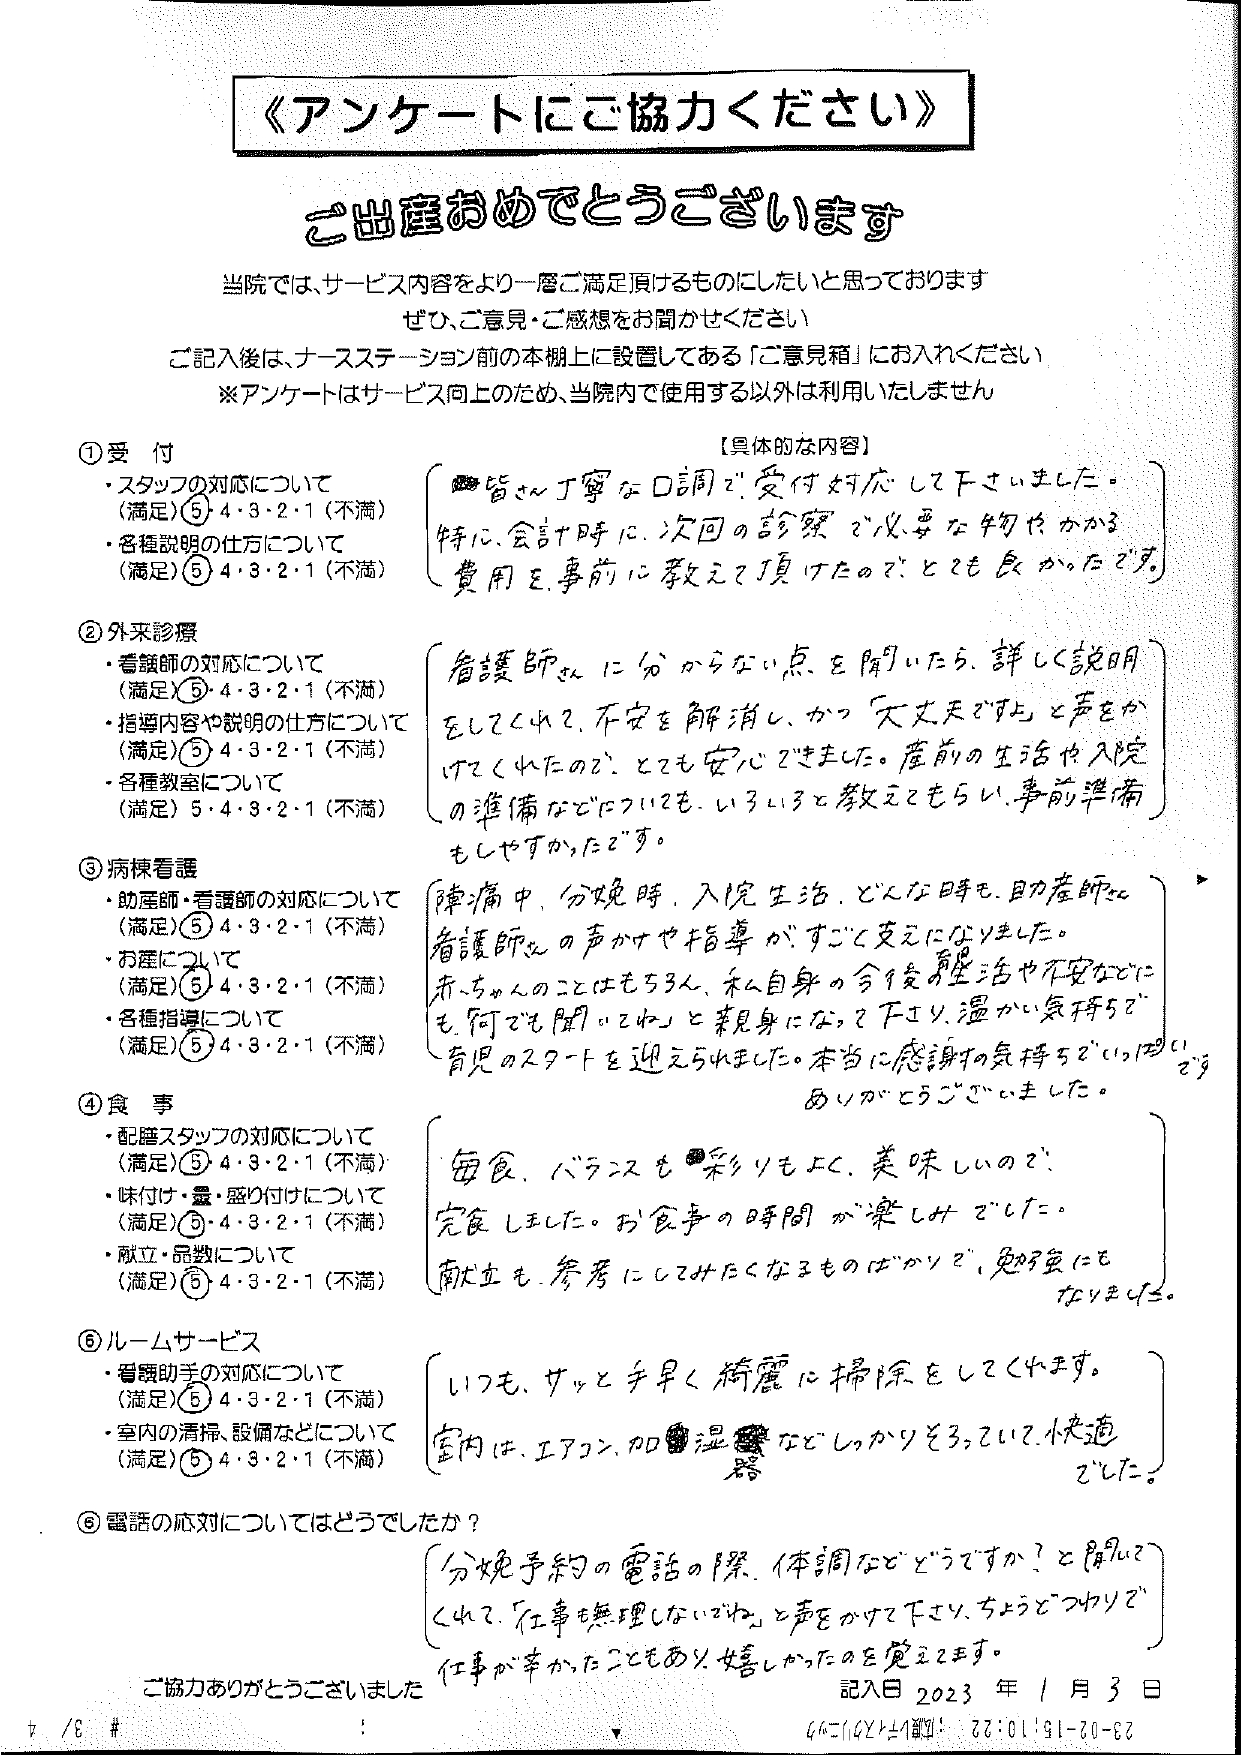 《アンケートにご協力ください》
ご出産おめでとうございます
当院では、サービス内容をより一層ご満足頂けるものにしたいと思っております
ぜひ、ご意見・ご感想をお聞かせください
ご記入後は、ナースステーション前の本棚上に設置してある「ご意見箱」にお入れください
※アンケートはサービス向上のため、当院内で使用する以外は利用いたしません
①受　付
【具体的な内容】
・スタッフの対応について
（満足）5・4・3・2・1（不満）
・各種説明の仕方について
（満足）5 4・3・2・1（不満）
皆さん丁寧な口調で、受付対応して下さいました。
特に、会計時に、次回の診察で必要な物や、かかる
費用を、事前に教えて頂けたので、とても良かったです。
②外来診療
・看護師の対応について
（満足）5・4・3・2・1（不満）
・指導内容や説明の仕方について
（満足）5 4・3・2・1（不満）
・各種教室について
（満足）5・4・3・2・1（不満）
看護師さんに分からない点を聞いたら、詳しく説明
をしてくれて、不安を解消し、かつ「大丈夫ですよ」と声をか
けてくれたので、とても安心できました。産前の生活や入院
の準備などについても、いろいろと教えてもらい、事前準備
もしやすかったです。
③病棟看護
・助産師・看護師の対応について
（満足）5 4・3・2・1（不満）
・お産について
（満足）5 4・3・2・1（不満）
・各種指導について
（満足）5 4・3・2・1（不満）
陣痛中、分娩時、入院生活、どんな時も、助産師さん
看護師さんの声かけや指導が、すごく支えになりました。
赤ちゃんのことはもちろん、私自身の今後の生活や不安などに
も、「何でも聞いてね」と親身になって下さり、温かい気持ちで
育児のスタートを迎えられました。本当に感謝の気持ちでいっぱいです
ありがとうございました。
④食　事
・配膳スタッフの対応について
（満足）5・4・3・2・1（不満）
・味付け・量・盛り付けについて
（満足）5・4・3・2・1（不満）
・献立・品数について
（満足）5・4・3・2・1（不満）
毎食、バランスも彩りもよく、美味しいので、
完食しました。お食事の時間が楽しみでした。
献立も、参考にしてみたくなるものばかりで、勉強にも
なりました。
⑤ルームサービス
・看護助手の対応について
（満足）5 4・3・2・1（不満）
・室内の清掃、設備などについて
（満足）5 4・3・2・1（不満）
いつも、サッと手早く綺麗に掃除をしてくれます。
室内は、エアコン、加湿器などしっかりそろっていて、快適
でした。
⑥電話の応対についてはどうでしたか？
分娩予約の電話の際、体調などどうですか？と聞いて
くれて、「仕事も無理しないでね」と声をかけて下さり、ちょうどつわりで
仕事が辛かったこともあり、嬉しかったのを覚えてます。
ご協力ありがとうございました
記入日 2023 年 1 月 3 日
23-02-15;10:22
# 3/ 4